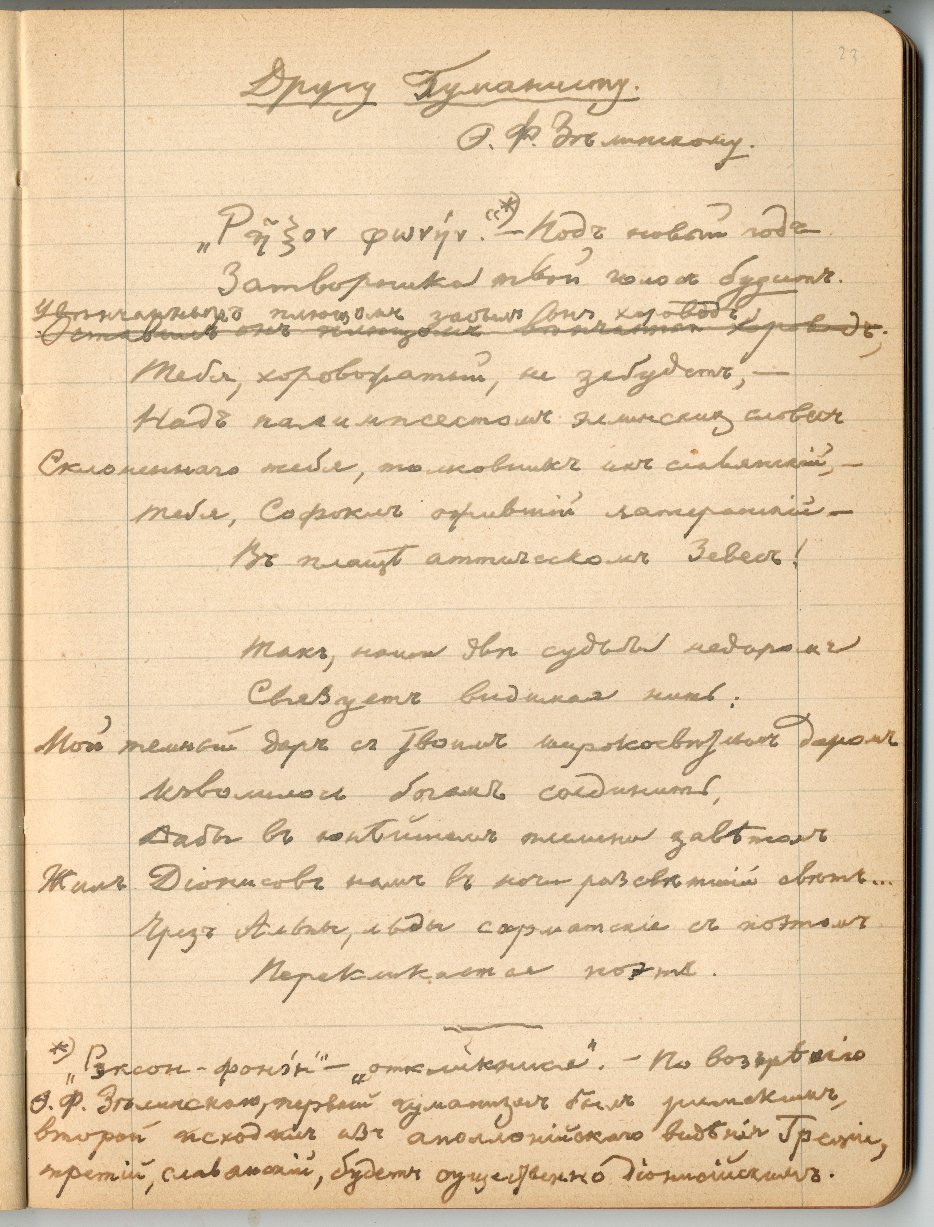 23
Другу Гуманисту.
Ѳ. Ф. Зѣлинскому.
„Ῥῆξον φωνήν.“*) — Подъ новый годъ
Затворника твой голосъ будитъ.
Увѣнчанныхъ плющомъ забылъ онъ хороводъ,
Оставилъ онъ плющомъ вѣнчанный хороводъ;
Тебя, хоровожатый, не забудетъ, —
Надъ палимпсестомъ эллинскихъ словесъ
Склоненнаго тебя, толковникъ ихъ славянскій, —
Тебя, Софоклъ ожившій латеранскій —
Въ плащѣ аттическомъ Зевесъ!
Такъ, наши двѣ судьбы недаромъ
Связуетъ видимая нить:
Мой темный даръ съ твоимъ широкосвѣтлымъ даромъ
Изволилось богамъ соединить,
Дабы въ юнѣйшемъ племени завѣтомъ
Жилъ Діонисовъ намъ въ ночи разсвѣтшій свѣтъ...
Чрезъ Альпы, льды сарматскіе съ поэтомъ
Перекликается поэтъ.
*) „Рэксон-фонэ́н“ — „откликнися“. — По воззрѣнію
Ѳ. Ф. Зѣлинскаго, первый гуманизмъ былъ римскимъ,
второй исходилъ изъ аполлонійскаго видѣнія Греціи,
третій, славянскій, будетъ существенно діонисійскимъ.